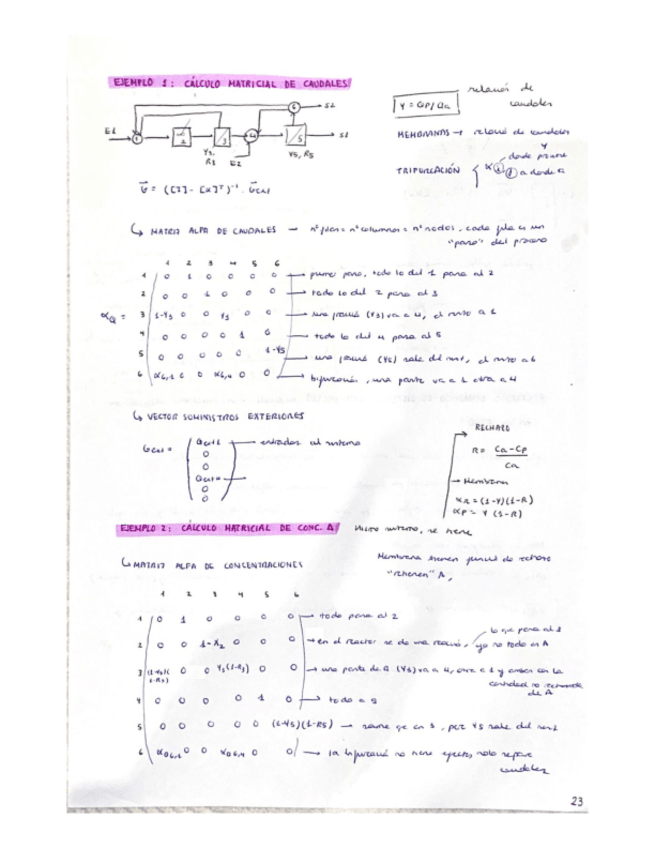 EJEMPLO 1: CÁLCULO MATRICIAL DE CAUDALES
relación de caudales
Y = Qp/Qa
S2
6
E1
1
2
3
4
5
S1
Y3, R3
E2
Y5, R5
MEMBRANAS → relación de caudales
Y
TRIFURCACIÓN
a donde
([I] - [α]ᵀ)⁻¹ ·
↳ MATRIZ ALFA DE CAUDALES — nº filas = nº columnas = nº nodos, cada fila es un
"paso" del proceso
1 2 3 4 5 6
αQ =
1 0 1 0 0 0 0 → primer paso, todo lo del 1 pasa al 2
2 0 0 1 0 0 0 → todo lo del 2 pasa al 3
3 1-Y3 0 0 Y3 0 0 → una fracción (Y3) va a 4, el resto a 1
4 0 0 0 0 1 0 → todo lo del 4 pasa al 5
5 0 0 0 0 0 1-Y5 → una fracción (Y5) sale del sist, el resto a 6
6 α6,1 0 0 α6,4 0 0 → bifurcación, una parte va a 1 otra a 4
↳ VECTOR SUMINISTROS EXTERIORES
Qext =
Qext1 → entradas al sistema
0
0
Qext4
0
0
→ RECHAZO
R = Ca - Cp / Ca
→ Membrana
αR = (1-Y)(1-R)
αP = Y (1-R)
EJEMPLO 2: CÁLCULO MATRICIAL DE CONC. A
Mismo sistema, se tiene
↳ MATRIZ ALFA DE CONCENTRACIONES
Membrana tienen función de rechazo
"retienen" A,
1 2 3 4 5 6
1 0 1 0 0 0 0 → todo pasa al 2
lo que pasa al 3
2 0 0 1-X2 0 0 0 → en el reactor se da una reacción, ya no todo es A
3 (1-Y3)(1-R3) 0 0 Y3(1-R3) 0 0 → una parte de Q (Y3) va a 4, otra a 1 y ambas con la
cantidad no retenida
de A
4 0 0 0 0 1 0 → todo a 5
5 0 0 0 0 0 (1-Y5)(1-R5) → que en 3, pero Y5 sale del sist
6 αQ6,1 0 0 αQ6,4 0 0 → la bifurcación no tiene efecto, solo reparte
caudales
23